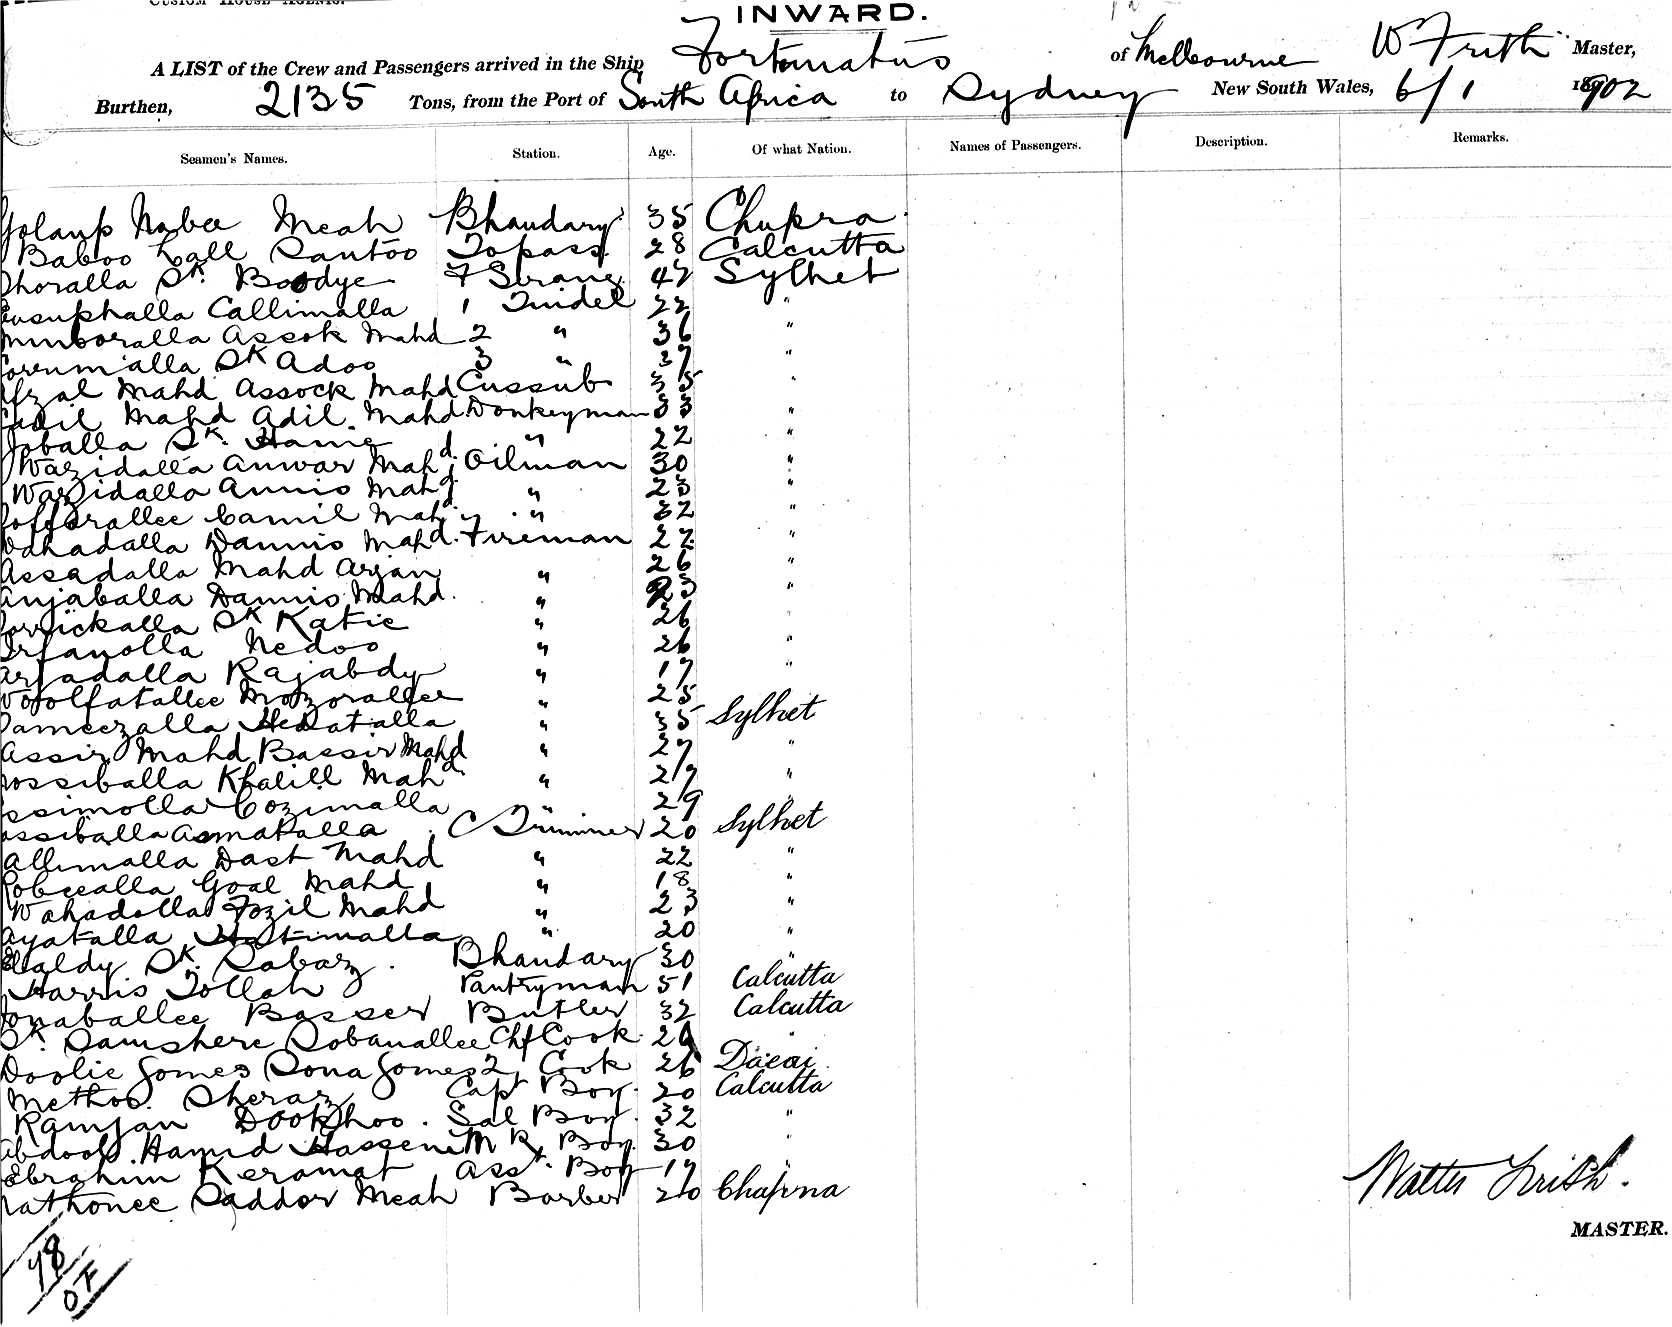 CUSTOM HOUSE AGENTS.
INWARD.
A LIST of the Crew and Passengers arrived in the Ship Fortunatus of Melbourne W Frith Master,
Burthen, 2135 Tons, from the Port of South Africa to Sydney New South Wales, 6/1 1902
Seamen's Names. Station. Age. Of what Nation. Names of Passengers. Description. Remarks.
Golaup Nabee Meah Bhandary 35 Chupra
Baboo Lall Santoo Topass 28 Calcutta
Shoralla Sk. Boodye F Serang 47 Sylhet
Eusuphalla Callimalla 1 Tindel 22 "
Assok Mahd 2 " 36 "
Sk Adoo 3 " 37 "
Afzal Mahd Assock Mahd Cussub 35 "
Mahd Adil Mahd Donkeyman 33 "
Joballa Sk. Hanie " 22 "
Wazidalla Anwar Mahd. Oilman 30 "
Wazidalla Annis Mahd. " 23 "
Camil Mahd. " 32 "
Wahadalla Dannis Mahd. Fireman 27 "
Assadalla Mahd Arjan " 26 "
Anjaballa Dannis Mahd. " 23 "
Sk Katie " 26 "
Irfanolla Nedoo " 26 "
Arjadalla Rajabdy " 17 "
Woolfatallee Mozorallee " 25
Dameezalla Hedatalla " 35 Sylhet
Assir Mahd Bassir Mahd " 27 "
Khalill Mahd " 27 "
Cozimalla " 29
Asmatalla C Trimmer 20 Sylhet
Callimalla Dast Mahd " 22 "
Robeealla Goal Mahd " 18 "
Wahadolla Fozil Mahd " 23 "
Ayatalla Hatimalla " 20 "
Sk. Sabaz. Bhandary 30 "
Harris Tollah Pantryman 51 Calcutta
Jonaballee Basser Butler 32 Calcutta
Sk. Samshere Sobanallee Chf Cook. "
Doolie Gomes Sona Gomes 2 Cook 26 Dacai
Methoo. Sheraz Capt Boy. 20 Calcutta
Ramjan Dookhoo. Sal Boy. 32 "
Abdool Hamid Hassene M R Boy. 30 "
Ebrahim Keramat Asst. Boy 17 "
Saddor Meah Barber 20 Chapna
Walter Frith.
MASTER.